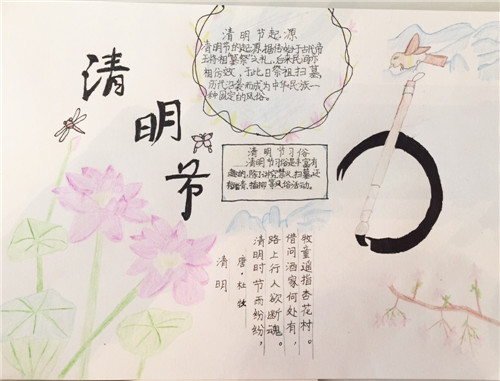 清明节
清明节起源
清明节的起源,据传始于古代帝
王将相"墓祭"之礼,后来民间亦
相仿效,于此日祭祖扫墓,
历代沿袭而成为中华民族一
种固定的风俗。
清明节习俗
清明节习俗是丰富有
趣的,除了讲究禁火、扫墓,还
有踏青、插柳等风俗活动。
清明
唐·杜牧
清明时节雨纷纷,
路上行人欲断魂。
借问酒家何处有,
牧童遥指杏花村。